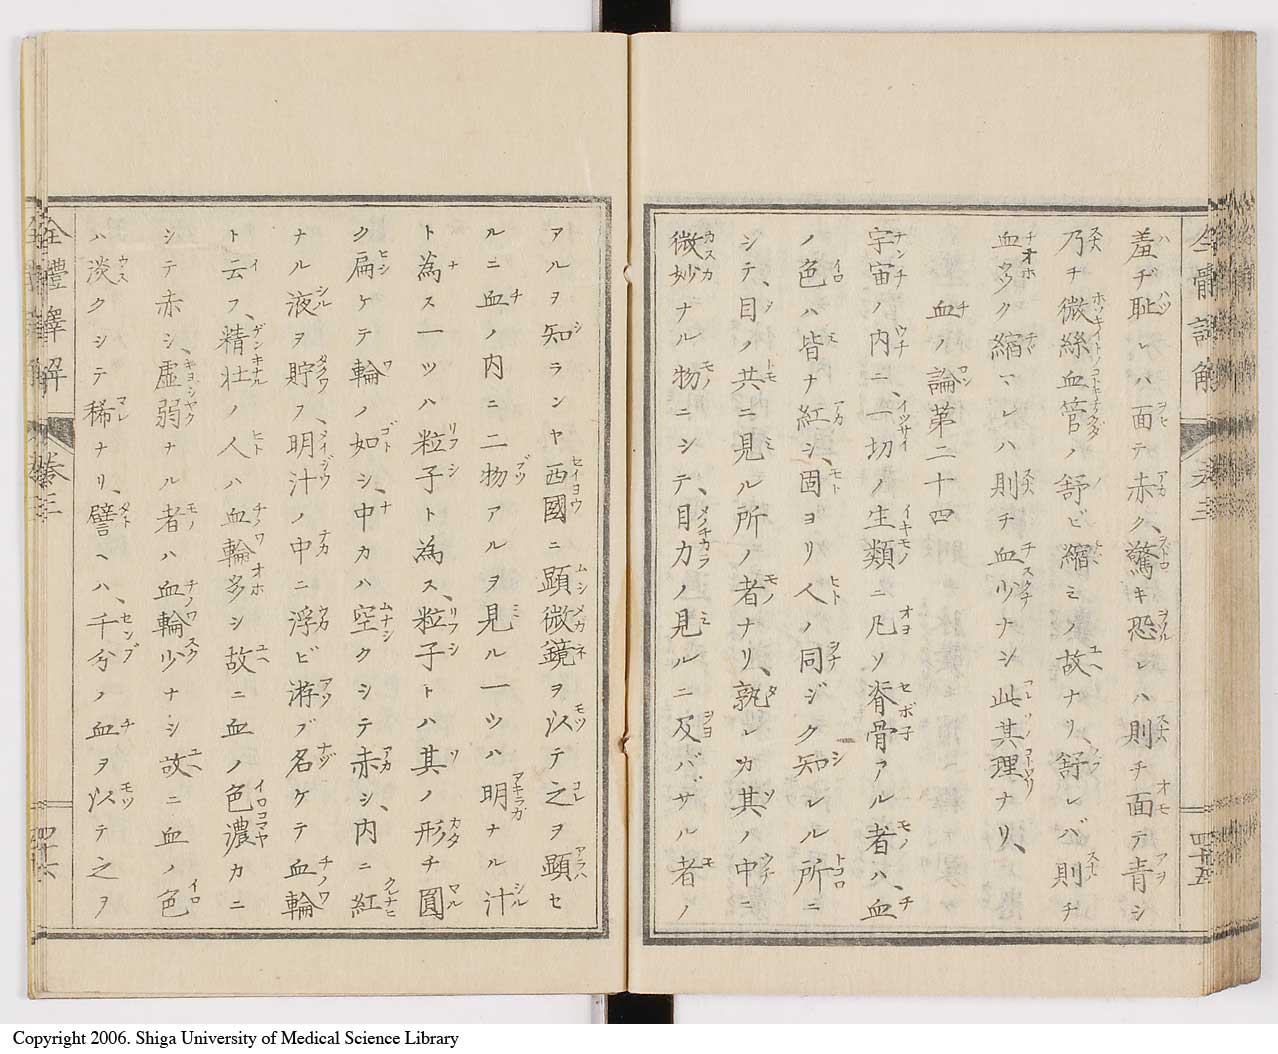 羞ヂ恥レハ面テ赤ク、驚キ恐レハ則チ面テ青シ
乃チ微絲血管ノ舒ビ縮ミノ故ナリ舒レバ則チ
血多ク縮マレハ則チ血少ナシ此其理ナリ、
血ノ論第二十四
宇宙ノ内ニ、一切ノ生類ニ凡ソ脊骨アル者ハ、血
ノ色ハ皆ナ紅シ、固ヨリ人ノ同ジク知レル所ニ
シテ、目ノ共ニ見ル所ノ者ナリ、孰レカ其ノ中ニ
微妙ナル物ニシテ、目力ノ見ルニ及バザル者ノ
全體譯解 卷三
四十六
アルヲ知ランヤ西國ニ顕微鏡ヲ以テ之ヲ顕セ
ルニ血ノ内ニ二物アルヲ見ル一ツハ明ナル汁
ト為ス一ツハ粒子ト為ス、粒子トハ其ノ形チ圓
ク扁ケテ輪ノ如シ、中カハ空クシテ赤シ、内ニ紅
ナル液ヲ貯フ、明汁ノ中ニ浮ビ游ブ名ケテ血輪
ト云フ、精壮ノ人ハ血輪多シ故ニ血ノ色濃カニ
シテ赤シ、虚弱ナル者ハ血輪少ナシ故ニ血ノ色
ハ淡クシテ稀ナリ、譬ヘハ、千分ノ血ヲ以テ之ヲ
Copyright 2006. Shiga University of Medical Science Library